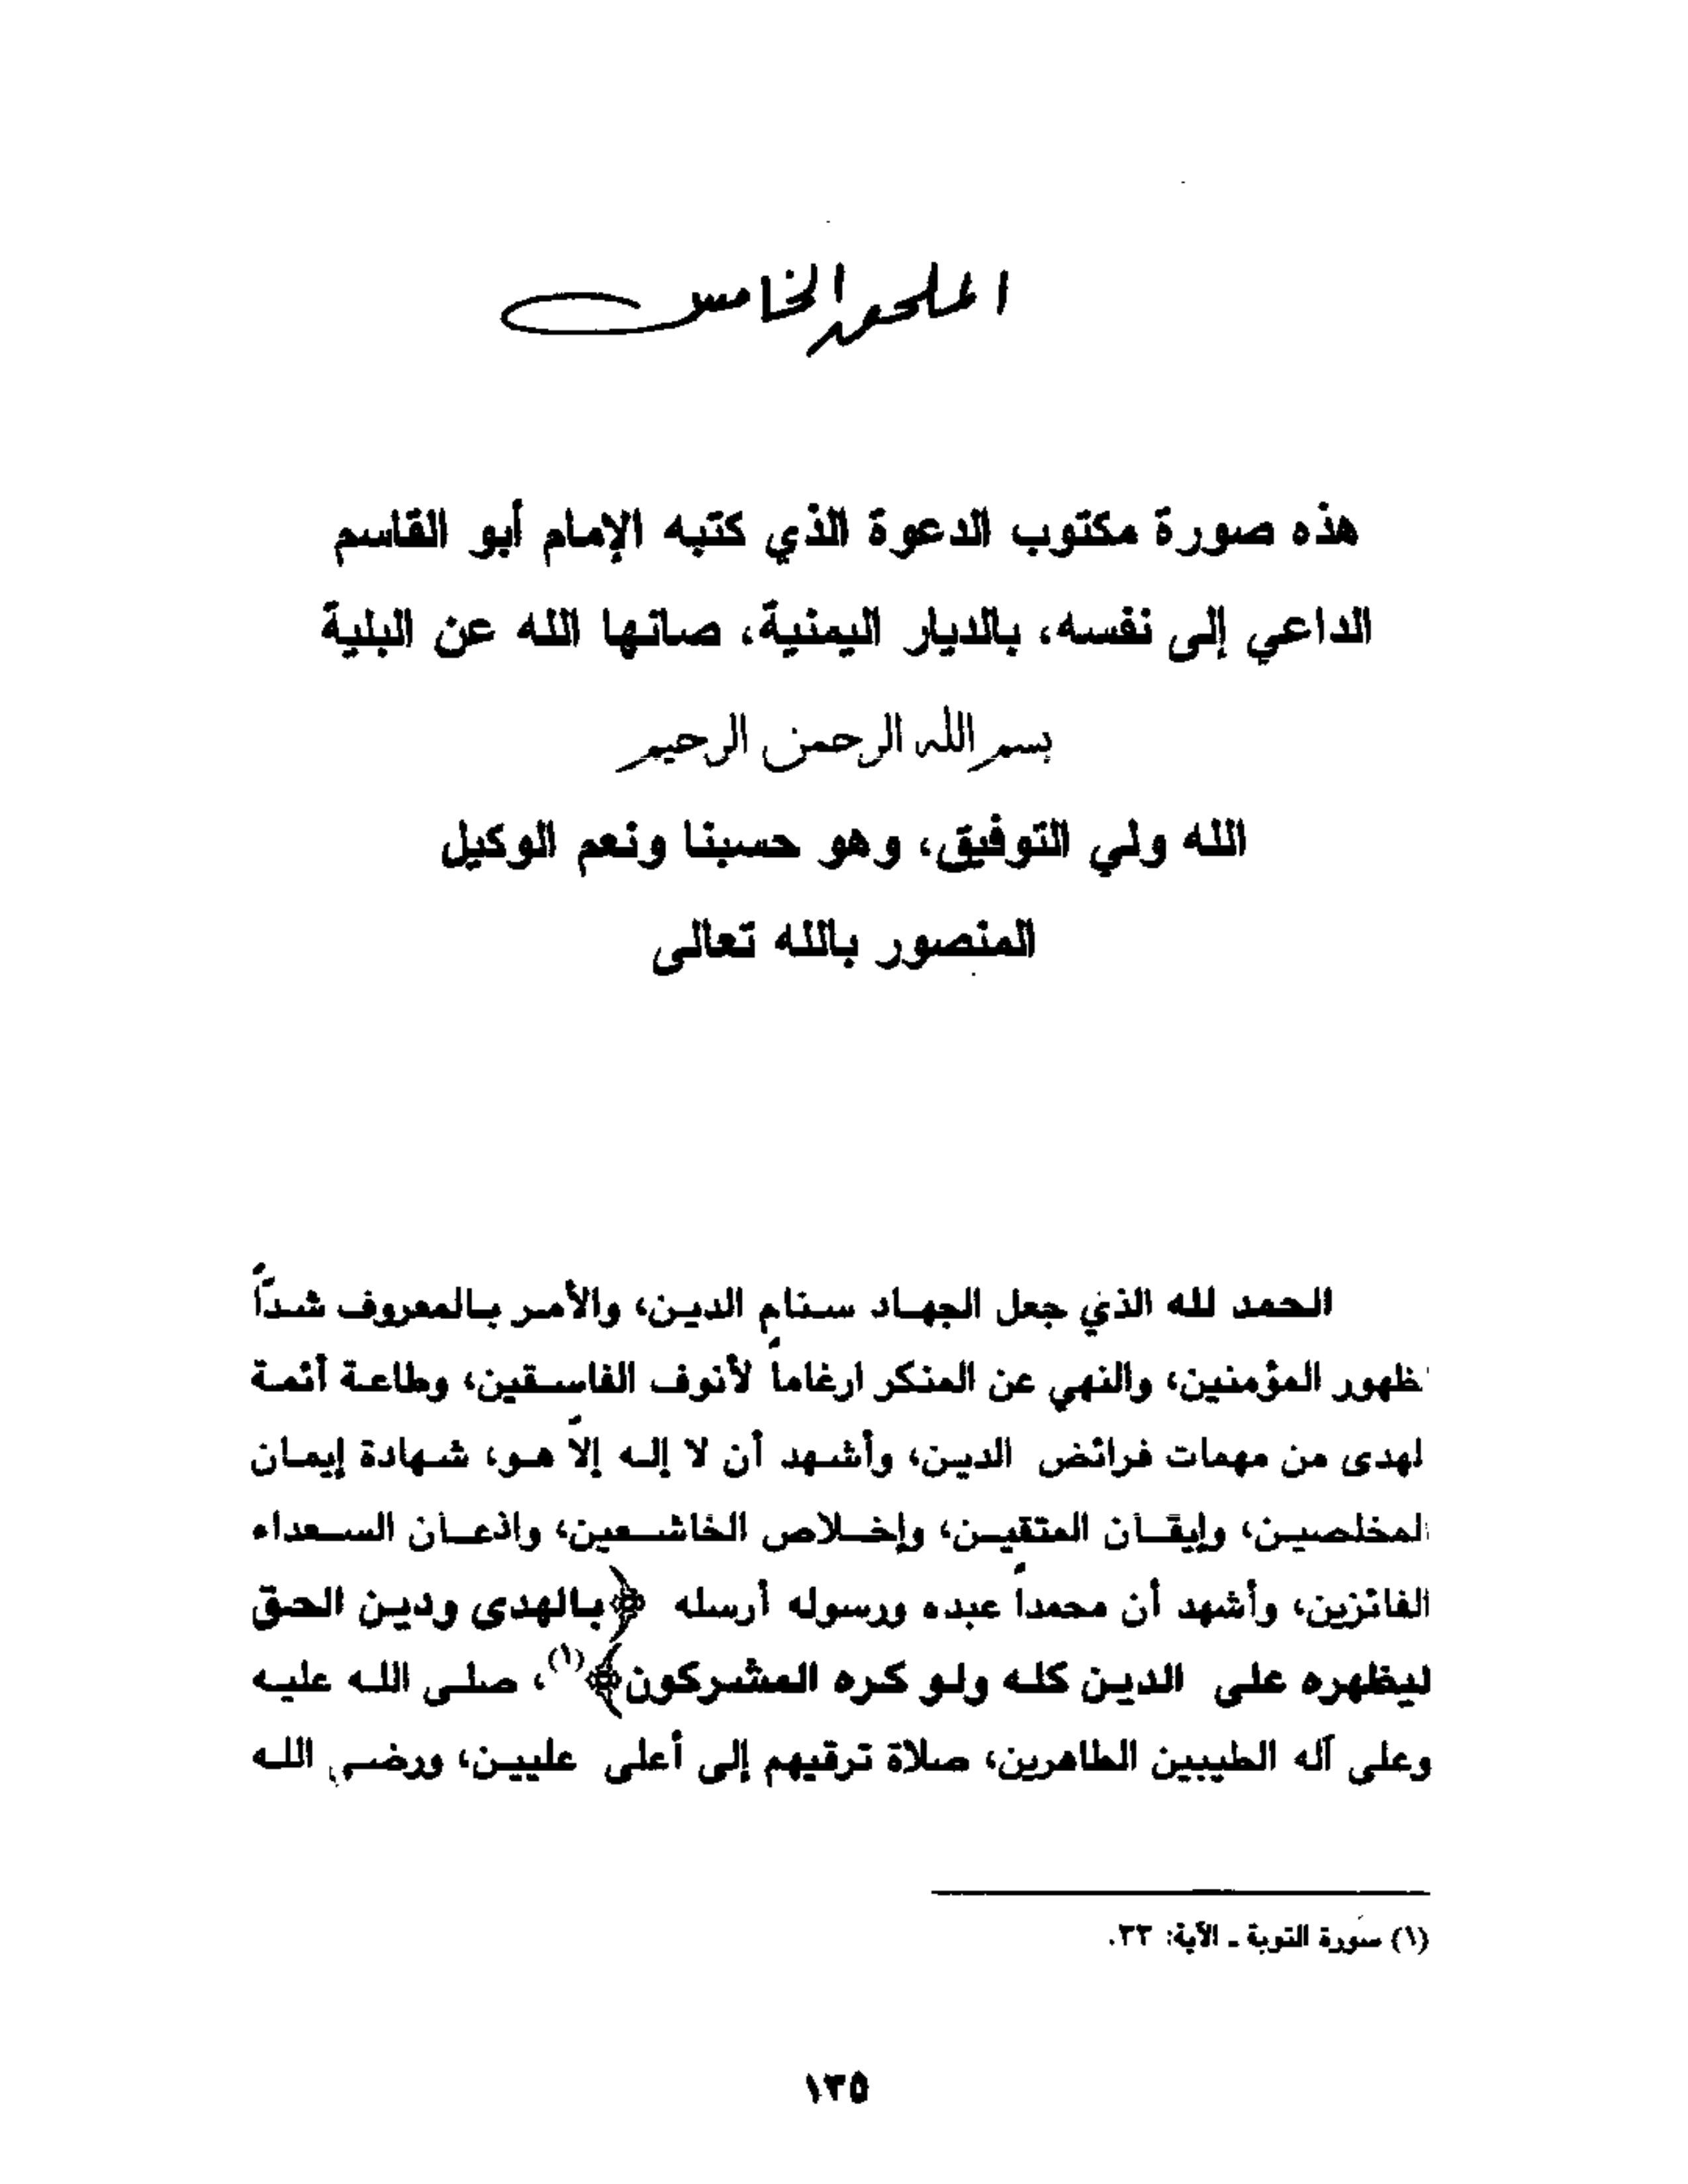 الملحق الخامس
هذه صورة مكتوب الدعوة الذي كتبه الإمام أبو القاسم
الداعي إلى نفسه، بالديار اليمنية، صانها الله عن البلية
بسم الله الرحمن الرحيم
الله ولي التوفيق، وهو حسبنا ونعم الوكيل
المنصور بالله تعالى
الحمد لله الذي جعل الجهاد سنام الدين، والأمر بالمعروف شدّاً
لظهور المؤمنين، والنهي عن المنكر ارغاماً لأنوف الفاسقين، وطاعة أئمة
لهدى من مهمات فرائض الدين، وأشهد أن لا إله إلاّ هو، شهادة إيمان
المخلصين، وإيقان المتقين، وإخلاص الخاشعين، واذعان السعداء
الفائزين، وأشهد أن محمداً عبده ورسوله أرسله ﴿بالهدى ودين الحق
ليظهره على الدين كله ولو كره المشركون﴾(١)، صلى الله عليه
وعلى آله الطيبين الطاهرين، صلاة ترقيهم إلى أعلى عليين، ورضي الله
(١) سورة التوبة ـ الآية: ٣٣.
١٣٥